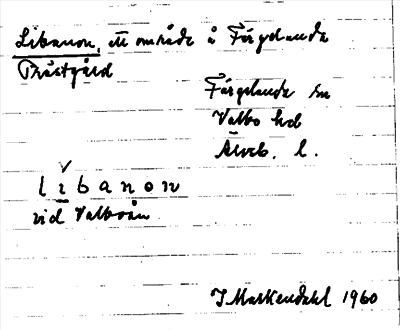 Libanon, ett område å Färgelanda
Prästgård
Färgelanda sn
Valbo hd
Älvsb. l.
libanon
vid Valboån
J Markendahl 1960